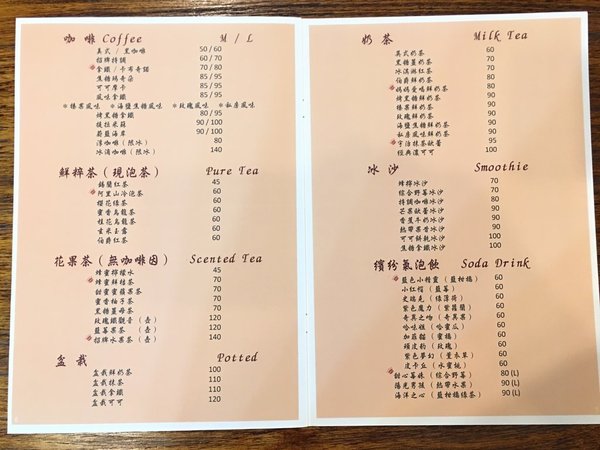 咖啡 Coffee M / L
美式 / 黑咖啡 50 / 60
招牌特調 60 / 70
拿鐵 / 卡布奇諾 70 / 80
焦糖瑪奇朵 85 / 95
可可摩卡 85 / 95
風味拿鐵 85 / 95
＊榛果風味 ＊海鹽焦糖風味 ＊玫瑰風味 ＊私房風味
烤黑糖拿鐵 80 / 95
提拉米蘇 90 / 100
蔚藍海岸 90 / 100
淳咖啡 (限冰) 80
冰滴咖啡 (限冰) 140
鮮粹茶 ( 現泡茶 ) Pure Tea
錫蘭紅茶 45
阿里山冷泡茶 60
櫻花綠茶 60
蜜香烏龍茶 60
桂花烏龍茶 60
玄米玉露 60
伯爵紅茶 60
花果茶 ( 無咖啡因 ) Scented Tea
蜂蜜檸檬水 45
蜂蜜鮮桔茶 70
甜蜜蜜蘋果茶 70
蜜香柚子茶 70
黑糖薑母茶 70
玫瑰鐵觀音 (壺) 120
藍莓果茶 (壺) 120
招牌水果茶 (壺) 140
盆栽 Potted
盆栽鮮奶茶 100
盆栽抹茶 110
盆栽拿鐵 110
盆栽可可 120
奶茶 Milk Tea
英式奶茶 60
黑糖薑奶茶 70
冰淇淋紅茶 70
伯爵鮮奶茶 80
媽媽愛喝鮮奶茶 80
烤黑糖鮮奶茶 90
榛果鮮奶茶 90
玫瑰鮮奶茶 90
海鹽焦糖鮮奶茶 90
私房風味鮮奶茶 90
宇治抹茶歐蕾 95
經典濃可可 100
冰沙 Smoothie
蜂檸冰沙 70
綜合野莓冰沙 70
特調咖啡冰沙 80
芒果歐蕾冰沙 90
香蕉牛奶冰沙 90
熱帶果香冰沙 90
可可餅乾冰沙 100
焦糖鐵冰沙 100
繽紛氣泡飲 Soda Drink
藍色小精靈 (藍柑橘) 60
小紅帽 (藍莓) 60
史瑞克 (綠薄荷) 60
紫色魔力 (紫羅蘭) 60
奇異之吻 (奇異果) 60
哈味姐 (哈蜜瓜) 60
加菲貓 (蜜橘) 60
頑皮豹 (玫瑰) 60
紫色夢幻 (薰衣草) 60
皮卡丘 (水蜜桃) 60
甜心莓妹 (綜合野莓) 80 (L)
陽光男孩 (熱帶水果) 90 (L)
海洋之心 (藍柑橘綠茶) 90 (L)